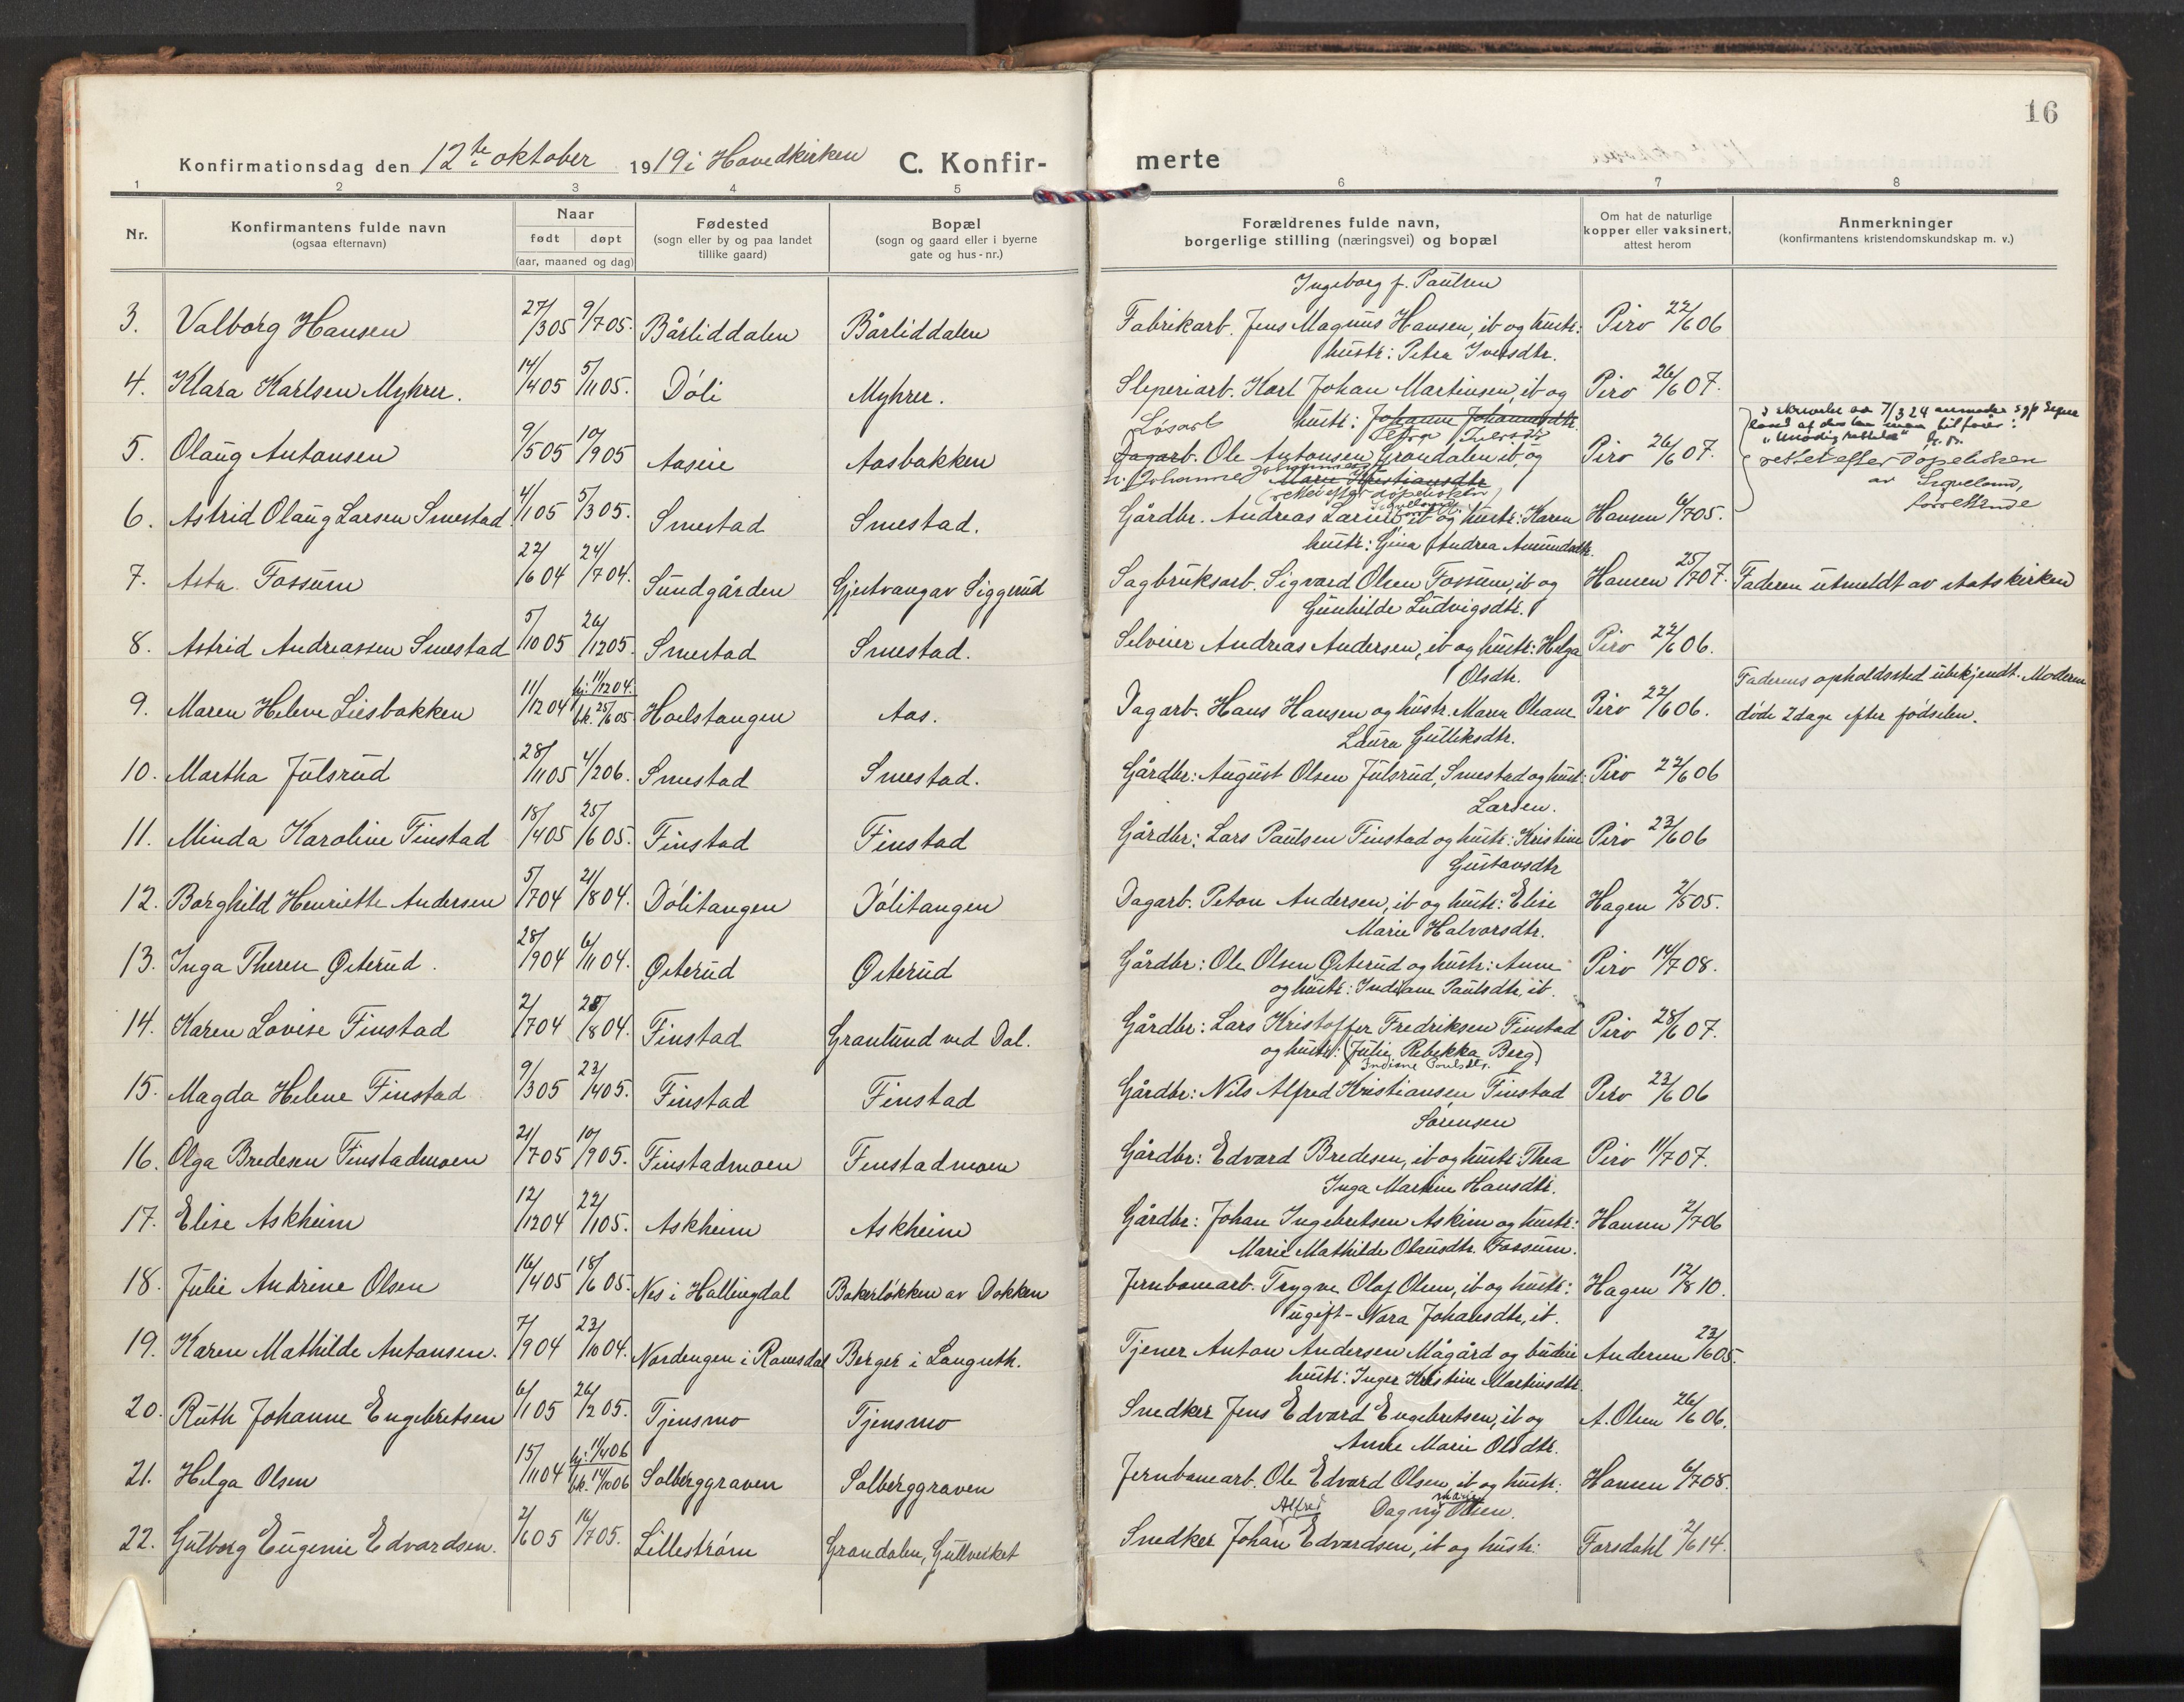 16
Konfirmationsdag den 12te oktober 1919 i Hovedkirken C. Konfirmerte
1 2 3 4 5 6 7 8
Nr.
Konfirmantens fulde navn
(ogsaa efternavn)
Naar
født døpt
(aar, maaned og dag)
Fødested
(sogn eller by og paa landet
tillike gaard)
Bopæl
(sogn og gaard eller i byerne
gate og hus-nr.)
Forældrenes fulde navn,
borgerlige stilling (næringsvei) og bopæl
Om hat de naturlige
kopper eller vaksinert,
attest herom
Anmerkninger
(konfirmantens kristendomskundskap m. v.)
Ingeborg f. Paulsen
3. Valborg Hansen 27/3 05 9/7 05. Bårliddalen Bårliddalen Fabrikarb. Jens Magnus Hansen, ib og hustr: Piro 22/6 06
hustr: Petra Iversdtr.
4. Klara Karlsen Myhrer. 14/4 05 5/11 05. Döli Myhrer. Sliperiarb. Karl Johan Martinsen, ib og Piro 26/6 07.
Løsarb hustr: Johanne Johannesdtr.
Petra Iversdtr
5. Olaug Antonsen 9/5 05 10/9 05 Aaseie Aasbakken Dagarb. Ole Antonsen Grandalen ib, og Piro 26/6 07.
h. Johanne Johannesdtr Marie Kristiansdtr
(rettet efter døpeboken
rettet efter døpeboken
av Segvelund,
forrettende
6. Astrid Olaug Larsen Smestad 4/1 05 5/3 05. Smestad Smestad. Gårdbr. Andreas Larsen ib og hustr: Karen Hansen 6/7 05.
hustr: Gina Andrea Amundsdtr.
7. Asta Fossum 22/6 04 24/7 04. Sundgården Gjestvang av Siggerud Sagbruksarb. Sigvard Olsen Fossum, ib og Hansen 25/7 07. Faderen utmeldt av statskirken
Gunhilde Ludvigsdtr.
8. Astrid Andreassen Smestad 5/10 05 26/12 05. Smestad Smestad. Selveier Andreas Andersen, ib og hustr: Helga Piro 22/6 06.
Olsdtr.
9. Maren Helene Liesbakken 11/12 04 hj: 11/12 04. bk. 25/6 05 Hoelstangen Aas. Dagarb. Hans Hansen og hustr. Maren Oleane Piro 22/6 06. Faderens opholdssted ubekjendt. Moderen
døde 2 dage efter fødselen.
Laura Gulliksdtr.
10. Martha Julsrud 28/11 05 4/2 06. Smestad Smestad. Gårdbr: August Olsen Julsrud, Smestad og hust: Piro 22/6 06
Larsen.
11. Minda Karoline Finstad 18/4 05 25/6 05. Finstad Finstad Gårdbr: Lars Paulsen Finstad og hustr: Kristine Piro 23/6 06
Gustavsdtr
12. Borghild Henriette Andersen 5/7 04 21/8 04. Dölitangen Dölitangen Dagarb. Peton Andersen, ib og hustr: Elise Hagen 2/5 05.
Marie Halvorsdtr.
13. Inga Therese Østerud. 28/9 04 6/11 04. Østerud Østerud Gårdbr: Ole Olsen Østerud og hustr: Anne Piro 14/7 08.
og hustr: Indiane Paulsdtr, ib.
14. Karen Lovise Finstad 2/7 04 28/8 04. Finstad Granlund ved Dal. Gårdbr: Lars Kristoffer Fredriksen Finstad Piro 28/6 07.
og hustr: (Julie Rebekka Berg)
Indiane Paulsdtr.
15. Magda Helene Finstad 9/3 05 23/4 05. Finstad Finstad Gårdbr: Nils Alfred Kristiansen Finstad Piro 23/6 06
Sørensen
16. Olga Bredesen Finstadmoen 21/7 05 10/9 05. Finstadmoen Finstadmoen Gårdbr: Edvard Bredesen, ib og hustr: Thea Piro 11/7 07.
Inga Martine Hansdtr.
17. Elise Askheim 12/12 04 22/1 05. Askheim Askheim Gårdbr: Johan Ingebretsen Askim og hustr: Hansen 2/7 06
Marie Mathilde Olausdtr. Fossum.
18. Julie Andrine Olsen 16/4 05 18/6 05. Nes i Hallingdal Bakerløkken av Dokken Jernbanearb. Trygve Olaf Olsen, ib og hustr: Hagen 12/8 10.
ugift - Nora Johansdtr, ib.
19. Karen Mathilde Antonsen. 7/9 04 23/10 04. Nordengen i Romsdal Berger i Languth. Tjener Anton Andersen Mågård og budeie Andersen 23/6 05.
hustr: Inger Kristine Martinsdtr.
20. Ruth Johanne Engebretsen 6/1 05 26/2 05. Tjensmo Tjensmo Snedker Jens Edvard Engebretsen, ib og A. Olsen 26/6 06.
Anne Marie Olsdtr.
21. Helga Olsen 15/11 04 hj: 1/4 06 bk. 14/10 06 Solberggraven Solberggraven Jernbanearb. Ole Edvard Olsen, ib og hustr: Hansen 6/7 08.
Alfred Dagny Marie Olsen.
22. Gulborg Eugenie Edvardsen. 2/6 05 16/7 05. Lillestrøm Grandalen, Gullverket Snedker Johan Edvardsen, ib og hustr: Farsdahl 2/6 14.